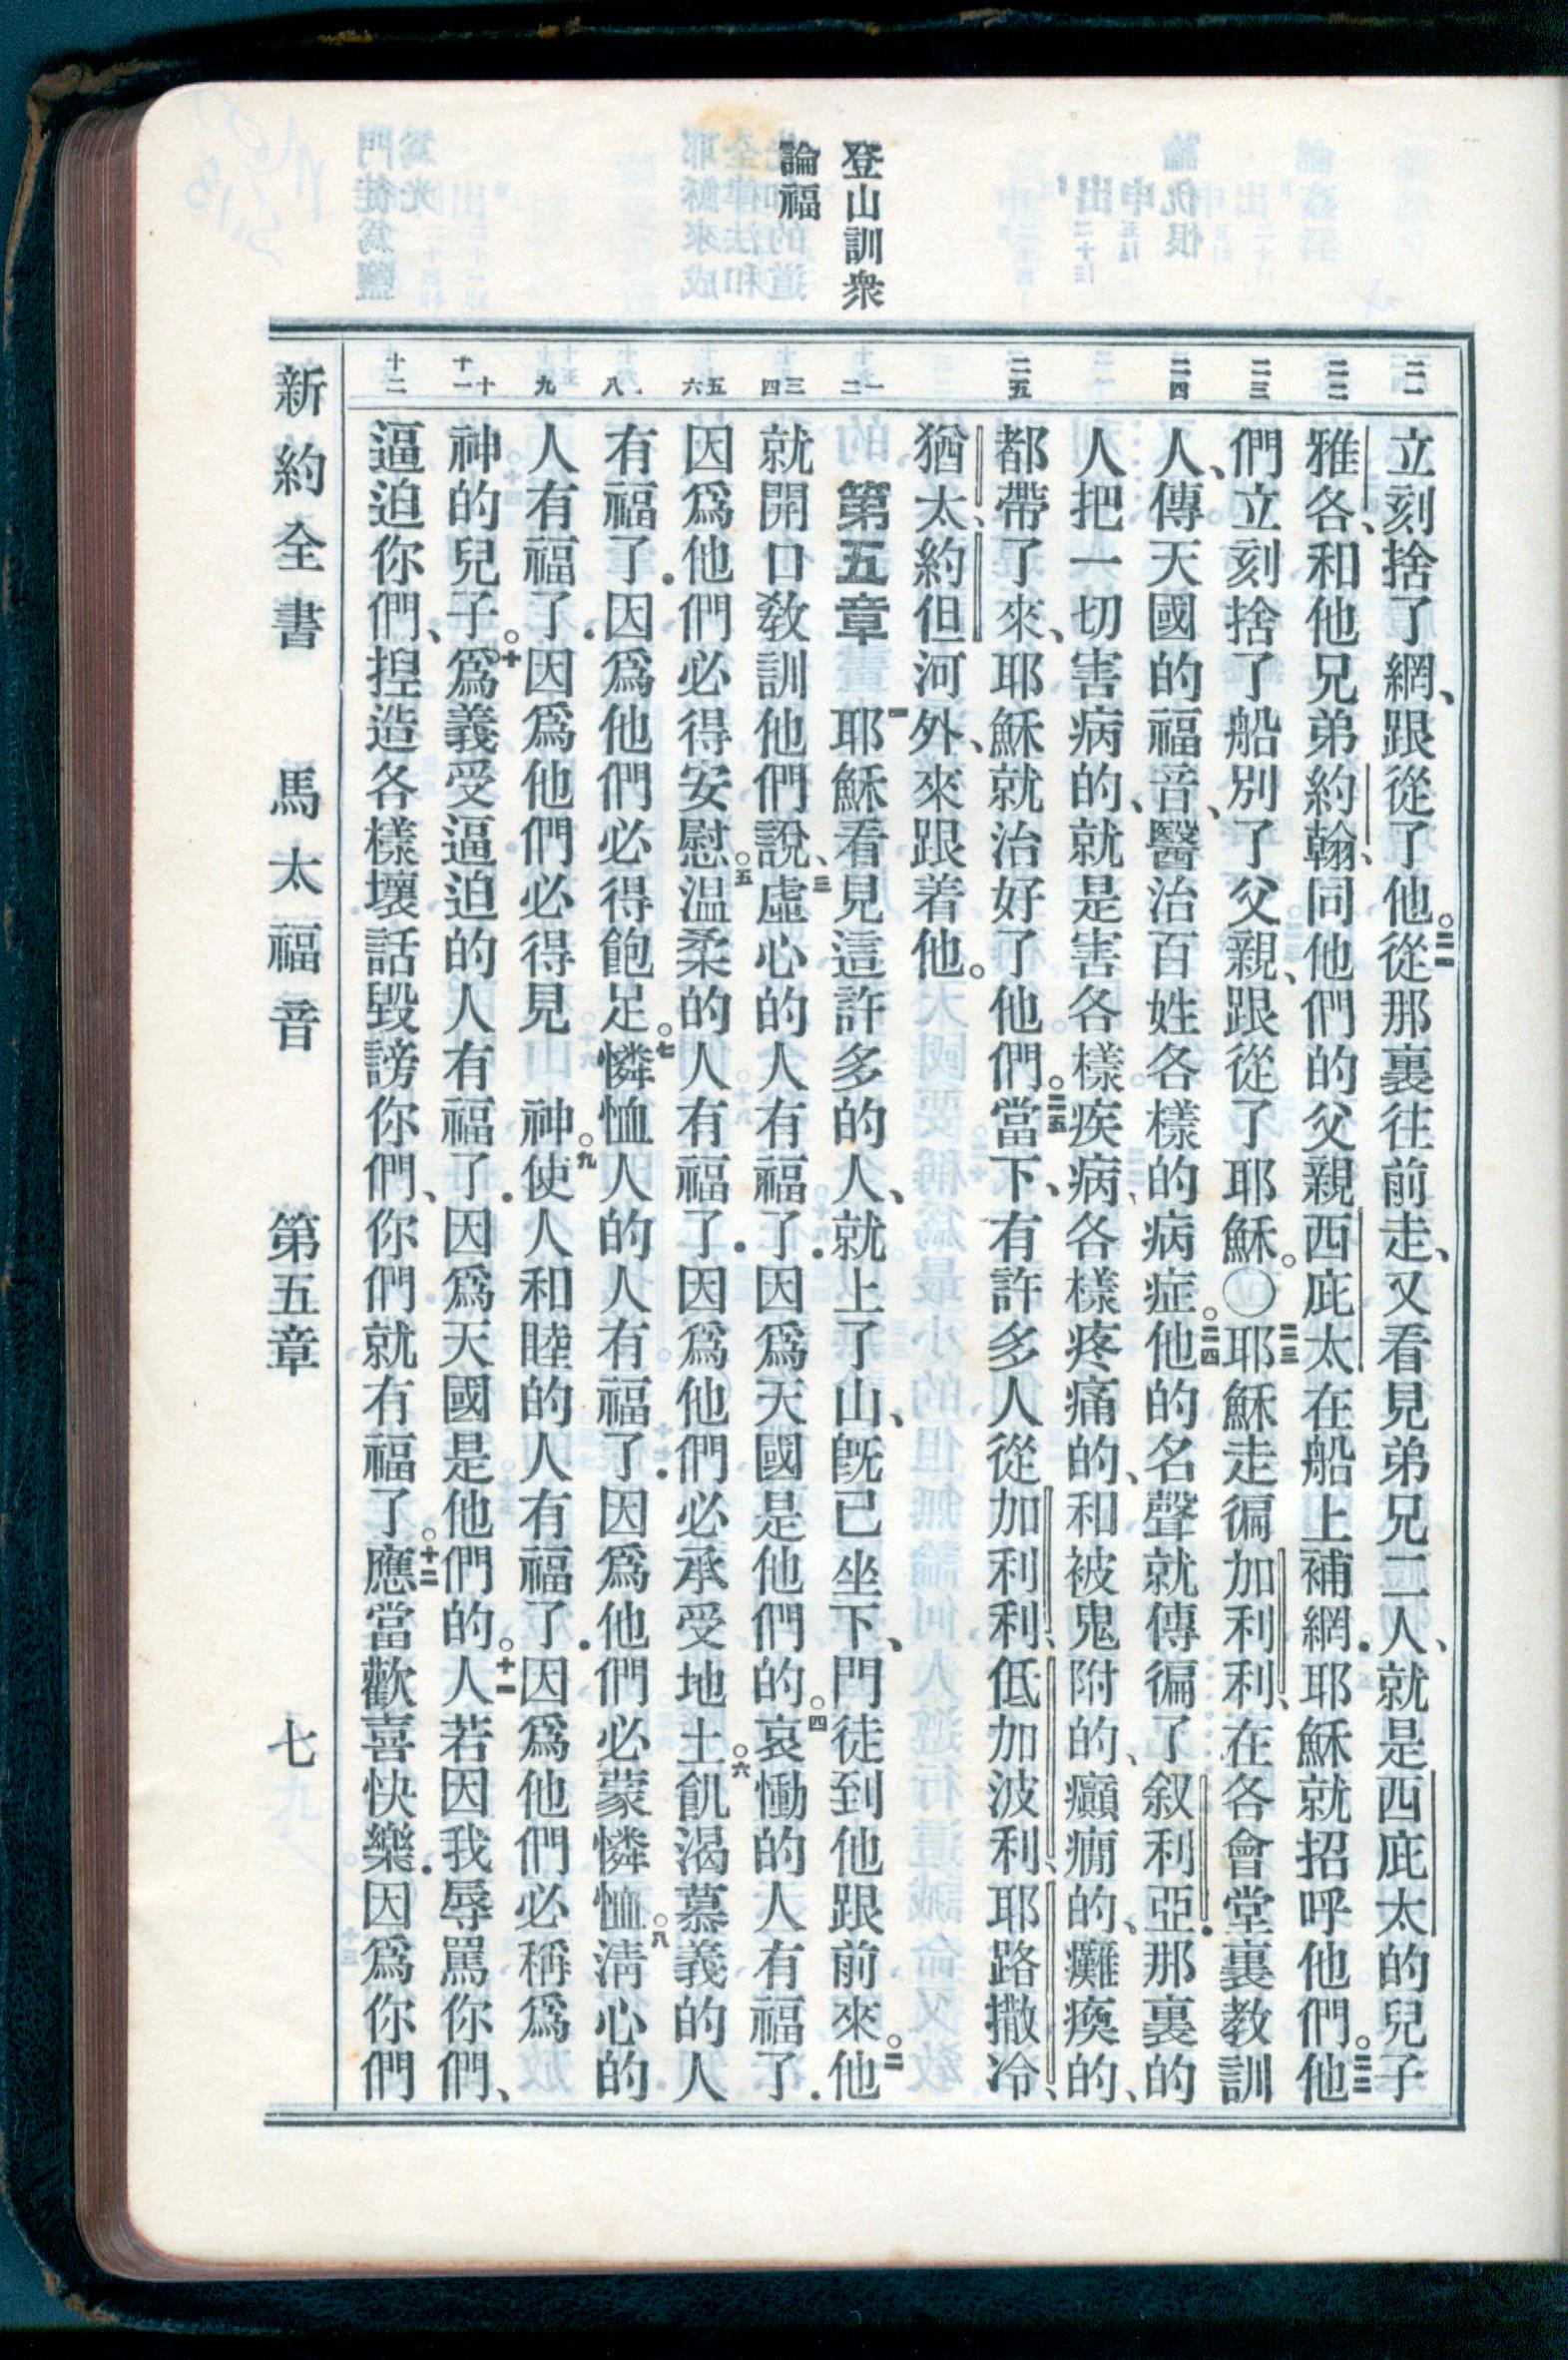 登山訓衆
論福
立刻捨了網、跟從了他。二一從那裏往前走、又看見弟兄二人、就是西庇太的兒子
雅各、和他兄弟約翰、同他們的父親西庇太在船上補網．耶穌就招呼他們。二二他
們立刻捨了船、別了父親、跟從了耶穌。〇二三耶穌走徧加利利、在各會堂裏教訓
人、傳天國的福音、醫治百姓各樣的病症。二四他的名聲就傳徧了叙利亞．那裏的
人把一切害病的、就是害各樣疾病、各樣疼痛的、和被鬼附的、癲癇的、癱瘓的、
都帶了來、耶穌就治好了他們。二五當下、有許多人從加利利、低加波利、耶路撒冷、
猶太、約但河外、來跟着他。
第五章 一耶穌看見這許多的人、就上了山、旣已坐下、門徒到他跟前來。二他
就開口敎訓他們說、三虛心的人有福了．因爲天國是他們的。四哀慟的人有福了．
因爲他們必得安慰。五温柔的人有福了．因爲他們必承受地土。六飢渴慕義的人
有福了．因爲他們必得飽足。七憐恤人的人有福了．因爲他們必蒙憐恤。八淸心的
人有福了．因爲他們必得見 神。九使人和睦的人有福了．因爲他們必稱爲
神的兒子。十爲義受逼迫的人有福了．因爲天國是他們的。十一人若因我辱罵你們、
逼迫你們、揑造各樣壞話毀謗你們、你們就有福了。十二應當歡喜快樂．因爲你們
二一
二二
二三
二四
二五
一
二
三
四
五
六
八
九
十
十一
十二
新約全書 馬太福音 第五章 七